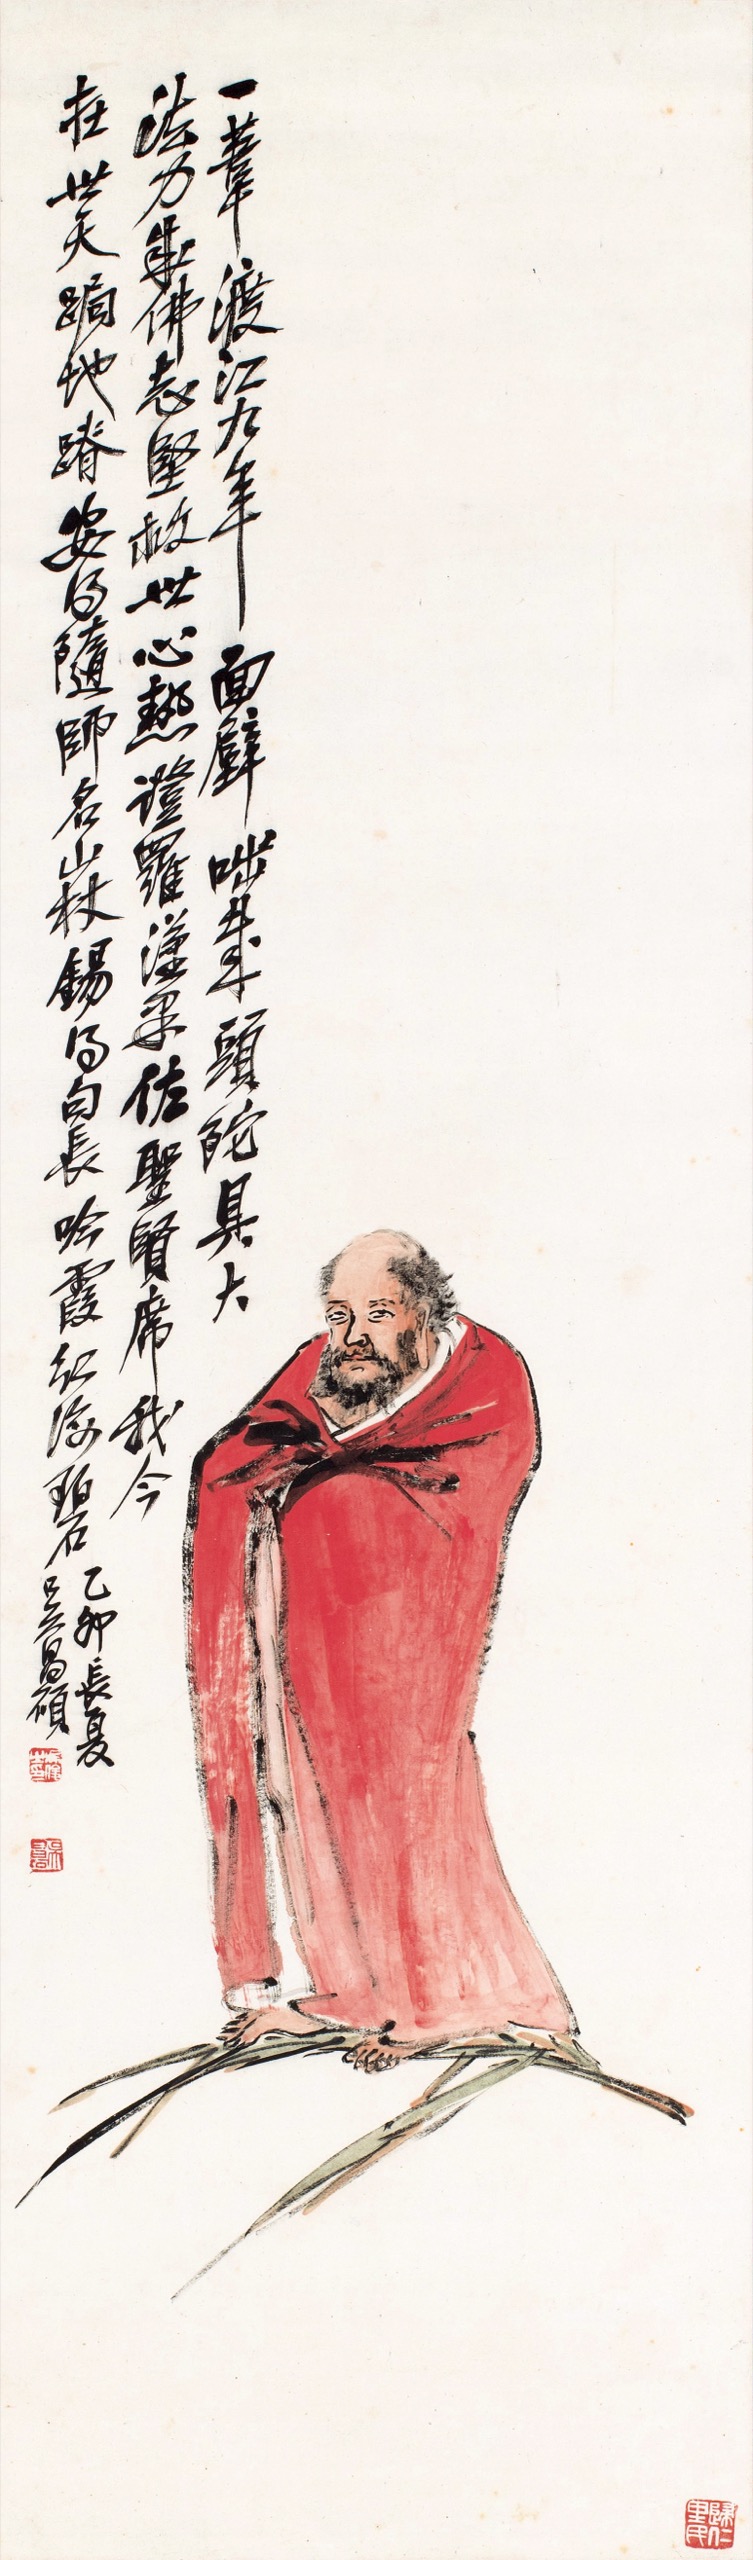 一葦渡江九年面壁咄哉頭陀具大
法力成佛志堅救世心熱證羅漢果佐聖賢席我今
在世天跼地蹐安得隨師名山杖錫得句長吟霞紅海碧
乙卯長夏
吳昌碩
歸仁里民